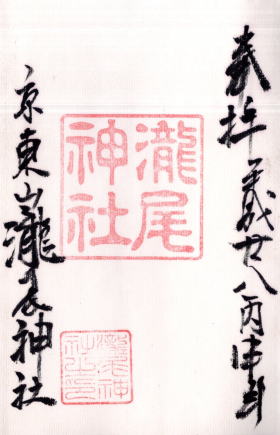 奉拝 平成廿八丙申年
瀧尾
神社
京東山瀧尾神社
瀧尾神
社之印